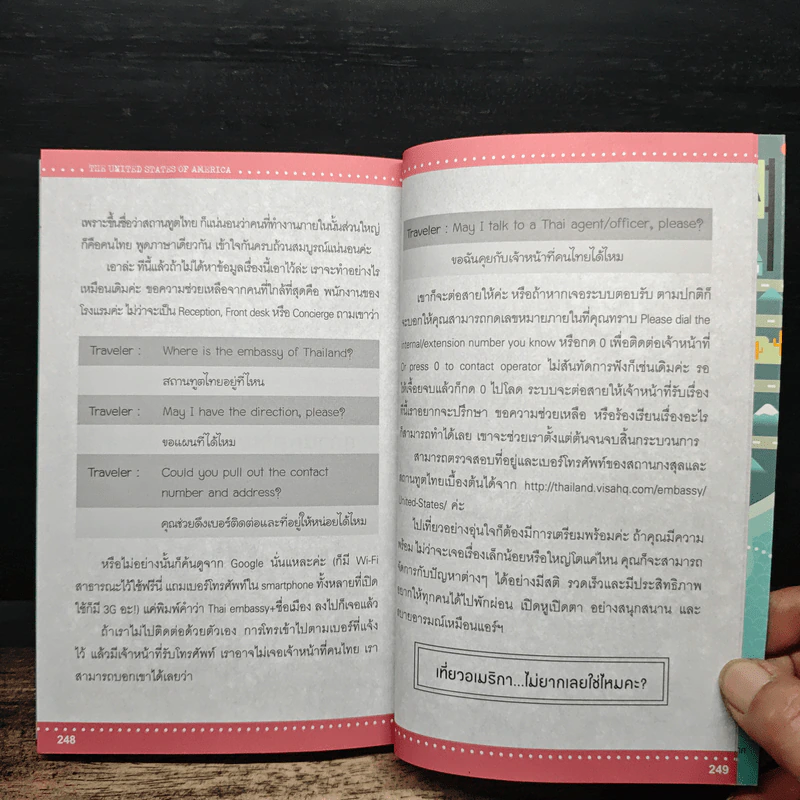 THE UNITED STATES OF AMERICA
เพราะขึ้นชื่อว่าสถานทูตไทย ก็แน่นอนว่าคนที่ทำงานภายในนั้นส่วนใหญ่
ก็คือคนไทย พูดภาษาเดียวกัน เข้าใจกันครบถ้วนสมบูรณ์แน่นอนค่ะ
เอาล่ะ ทีนี้แล้วถ้าไม่ได้หาข้อมูลเรื่องนี้เอาไว้ล่ะ เราจะทำอย่างไร
เหมือนเดิมค่ะ ขอความช่วยเหลือจากคนที่ใกล้ที่สุดคือ พนักงานของ
โรงแรมค่ะ ไม่ว่าจะเป็น Reception, Front desk หรือ Concierge ถามเขาว่า
Traveler : Where is the embassy of Thailand?
สถานทูตไทยอยู่ที่ไหน
Traveler : May I have the direction, please?
ขอแผนที่ได้ไหม
Traveler : Could you pull out the contact
number and address?
คุณช่วยดึงเบอร์ติดต่อและที่อยู่ให้หน่อยได้ไหม
หรือไม่อย่างนั้นก็ค้นดูจาก Google นั่นแหละค่ะ (ก็มี Wi-Fi
สาธารณะไว้ใช้ฟรีนี่ แถมเบอร์โทรศัพท์ใน smartphone ทั้งหลายที่เปิด
ใช้ก็มี 3G อะ!) แค่พิมพ์คำว่า Thai embassy+ชื่อเมือง ลงไปก็เจอแล้ว
ถ้าเราไม่ไปติดต่อด้วยตัวเอง การโทรเข้าไปตามเบอร์ที่แจ้ง
ไว้ แล้วมีเจ้าหน้าที่รับโทรศัพท์ เราอาจไม่เจอเจ้าหน้าที่คนไทย เรา
สามารถบอกเขาได้เลยว่า
248
Traveler : May I talk to a Thai agent/officer, please?
ขอฉันคุยกับเจ้าหน้าที่คนไทยได้ไหม
เขาก็จะต่อสายให้ค่ะ หรือถ้าหากเจอระบบตอบรับ ตามปกติก็
จะบอกให้คุณสามารถกดเลขหมายภายในที่คุณทราบ Please dial the
internal/extension number you know หรือกด 0 เพื่อติดต่อเจ้าหน้าที่
Or press 0 to contact operator ไม่สันทัดการฟังก็เช่นเดิมค่ะ รอ
ให้เจื้อยจบแล้วก็กด 0 ไปโลด ระบบจะต่อสายให้เจ้าหน้าที่รับเรื่อง
ทีนี้เราอยากจะปรึกษา ขอความช่วยเหลือ หรือร้องเรียนเรื่องอะไร
ก็สามารถทำได้เลย เขาจะช่วยเราตั้งแต่ต้นจนจบสิ้นกระบวนการ
สามารถตรวจสอบที่อยู่และเบอร์โทรศัพท์ของสถานกงสุลและ
สถานทูตไทยเบื้องต้นได้จาก http://thailand.visahq.com/embassy/
United-States/ ค่ะ
ไปเที่ยวอย่างอุ่นใจก็ต้องมีการเตรียมพร้อมค่ะ ถ้าคุณมีความ
พร้อม ไม่ว่าจะเจอเรื่องเล็กน้อยหรือใหญ่โตแค่ไหน คุณก็จะสามารถ
จัดการกับปัญหาต่างๆ ได้อย่างมีสติ รวดเร็วและมีประสิทธิภาพ
อยากให้ทุกคนได้ไปพักผ่อน เปิดหูเปิดตา อย่างสนุกสนาน และ
สบายอารมณ์เหมือนแอร์ฯ
เที่ยวอเมริกา...ไม่ยากเลยใช่ไหมคะ?
249